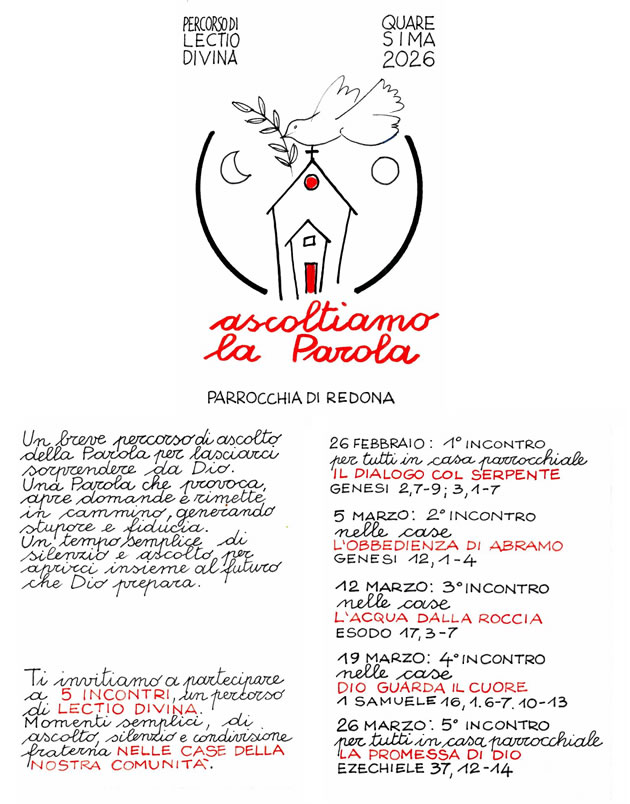 PERCORSO DI
LECTIO
DIVINA
QUARE
SIMA
2026
ascoltiamo
la Parola
PARROCCHIA DI REDONA
Un breve percorso di ascolto
della Parola per lasciarci
sorprendere da Dio.
Una Parola che provoca,
apre domande e rimette
in cammino, generando
stupore e fiducia.
Un tempo semplice di
silenzio e ascolto per
aprirci insieme al futuro
che Dio prepara.
Ti invitiamo a partecipare
a 5 INCONTRI, un percorso
di LECTIO DIVINA.
Momenti semplici, di
ascolto, silenzio e condivisione
fraterna NELLE CASE DELLA
NOSTRA COMUNITA'.
26 FEBBRAIO: 1° INCONTRO
per tutti in casa parrocchiale
IL DIALOGO COL SERPENTE
GENESI 2,7-9; 3,1-7
5 MARZO: 2° INCONTRO
nelle case
L'OBBEDIENZA DI ABRAMO
GENESI 12,1-4
12 MARZO: 3° INCONTRO
nelle case
L'ACQUA DALLA ROCCIA
ESODO 17,3-7
19 MARZO: 4° INCONTRO
nelle case
DIO GUARDA IL CUORE
1 SAMUELE 16,1.6-7.10-13
26 MARZO: 5° INCONTRO
per tutti in casa parrocchiale
LA PROMESSA DI DIO
EZECHIELE 37,12-14